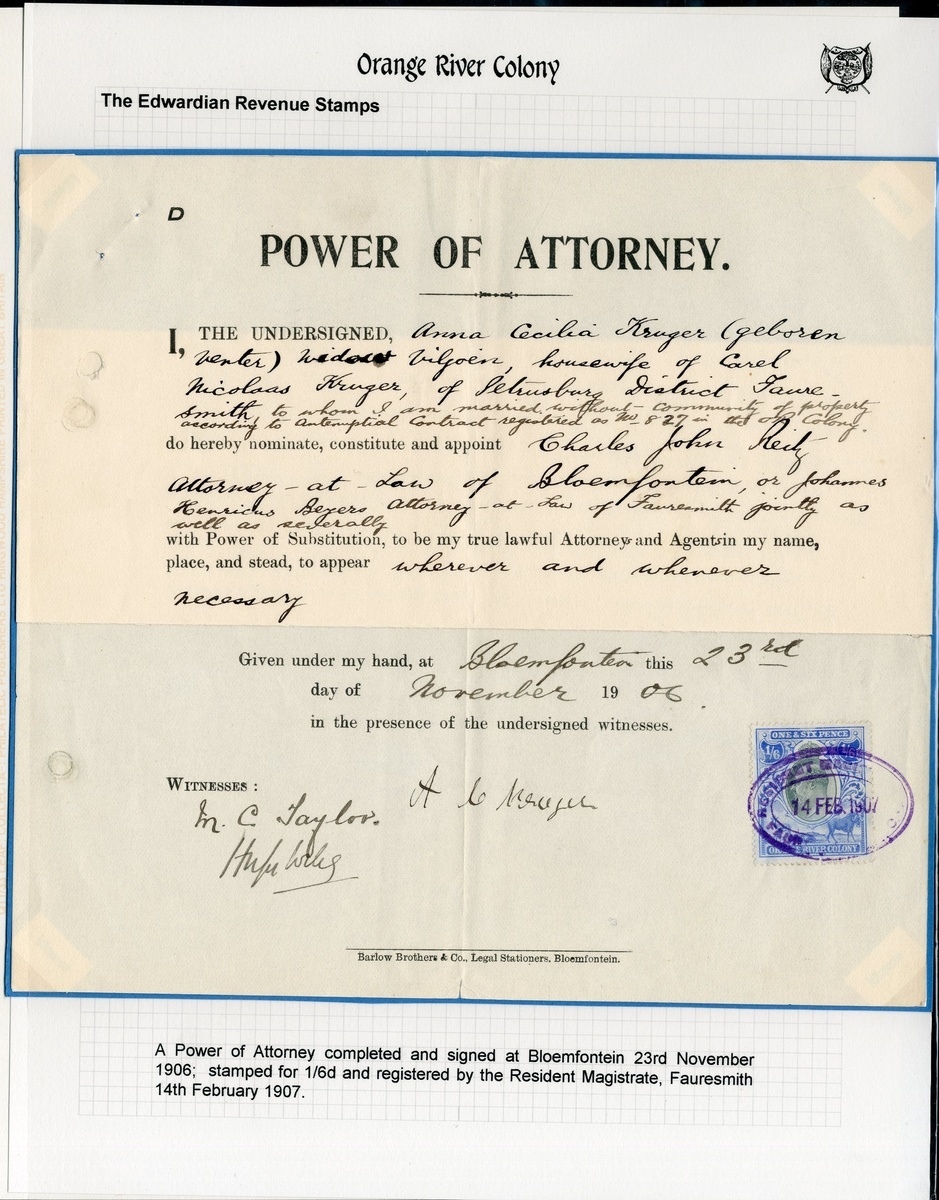 Orange River Colony
The Edwardian Revenue Stamps
D
POWER OF ATTORNEY.
I, THE UNDERSIGNED, Anna Cecilia Kruger (geboren
Venter) widow Viljoen, housewife of Carel
Nicolaas Kruger, of Petrusburg District Faure-
smith, to whom I am married without community of property
according to Antenuptial Contract registered as No 827 in the O R Colony.
do hereby nominate, constitute and appoint Charles John Reitz
Attorney-at-Law of Bloemfontein, or Johannes
Henricus Beyers Attorney-at-Law of Fauresmith jointly as
well as severally
with Power of Substitution, to be my true lawful Attorneys and Agents in my name,
place, and stead, to appear wherever and whenever
necessary
Given under my hand, at Bloemfontein this 23rd
day of November 1906.
in the presence of the undersigned witnesses.
ONE & SIX PENCE
1/6
RESIDENT
14 FEB. 1907
FAUR
ORANGE RIVER COLONY
WITNESSES:
A C Kruger
M. C. Taylor.
Barlow Brothers & Co., Legal Stationers, Bloemfontein.
A Power of Attorney completed and signed at Bloemfontein 23rd November
1906; stamped for 1/6d and registered by the Resident Magistrate, Fauresmith
14th February 1907.